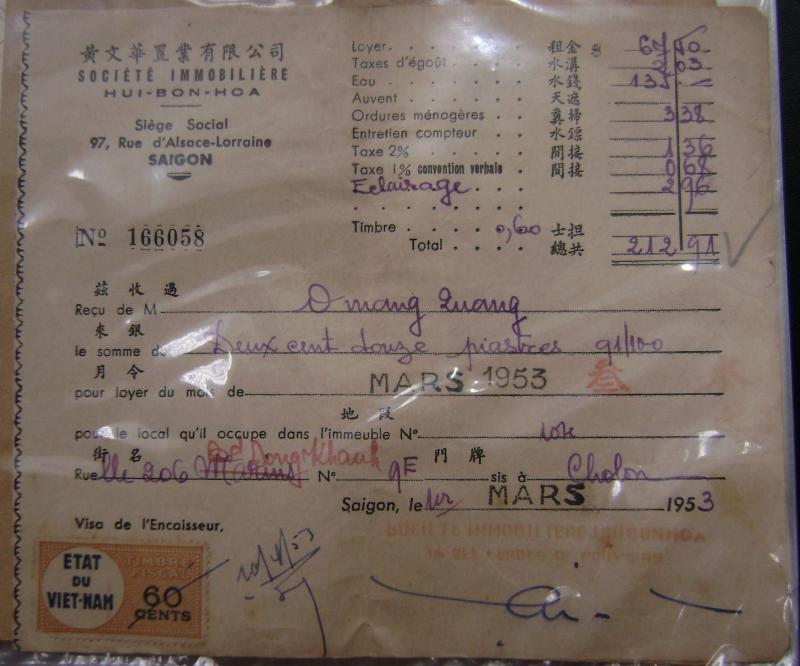 黃文華置業有限公司
SOCIÉTÉ IMMOBILIÈRE
HUI-BON-HOA
Siège Social
97, Rue d'Alsace-Lorraine
SAIGON
Nº 166058
Loyer. 租金 $ 67 10
Taxes d'égoût 水溝 2 03
Eau 水錢 135 -
Auvent 天遮
Ordures ménagères 糞掃 3 38
Entretien compteur 水鏢
Taxe 2% 間接 1 36
Taxe 1% convention verbale 間接 0 68
Eclairage 2 96
Timbre 0,60 士担
Total 總共 212 91
茲收過
Reçu de M
來銀
le somme de Deux cent douze piastres 91/100
月令
pour loyer du mois de MARS 1953 叁
地段
pour le local qu'il occupe dans l'immeuble Nº
街名 Bd Dong Khanh 門牌
Rue 206 Marins Nº 9E sis à Cholon
Saigon, le 1er MARS 1953
Visa de l'Encaisseur,
SOCIÉTÉ IMMOBILIÈRE HUIBONHOA
ETAT
DU
VIET-NAM
TIMBRE
FISCAL
60
CENTS